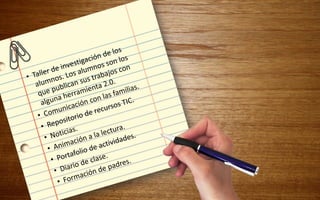 • Taller de investigación de los
alumnos: Los alumnos son los
que publican sus trabajos con
alguna herramienta 2.0.
• Comunicación con las familias.
• Repositorio de recursos TIC.
• Noticias.
• Animación a la lectura.
• Portafolio de actividades.
• Diario de clase.
• Formación de padres.